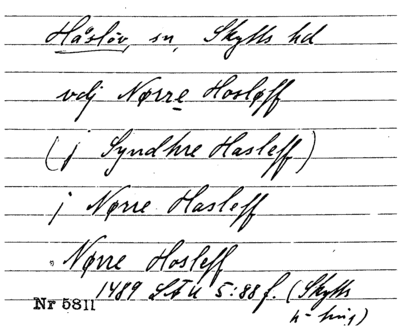 Håslöv, sn, Skytts hd
vdj Nørre Hosløff
(j Syndhre Hasleff)
j Nørre Hasleff
Nørre Hosleff
1489 LÅU 5:88 f. (Skytts
h- ting)
Nr 5811